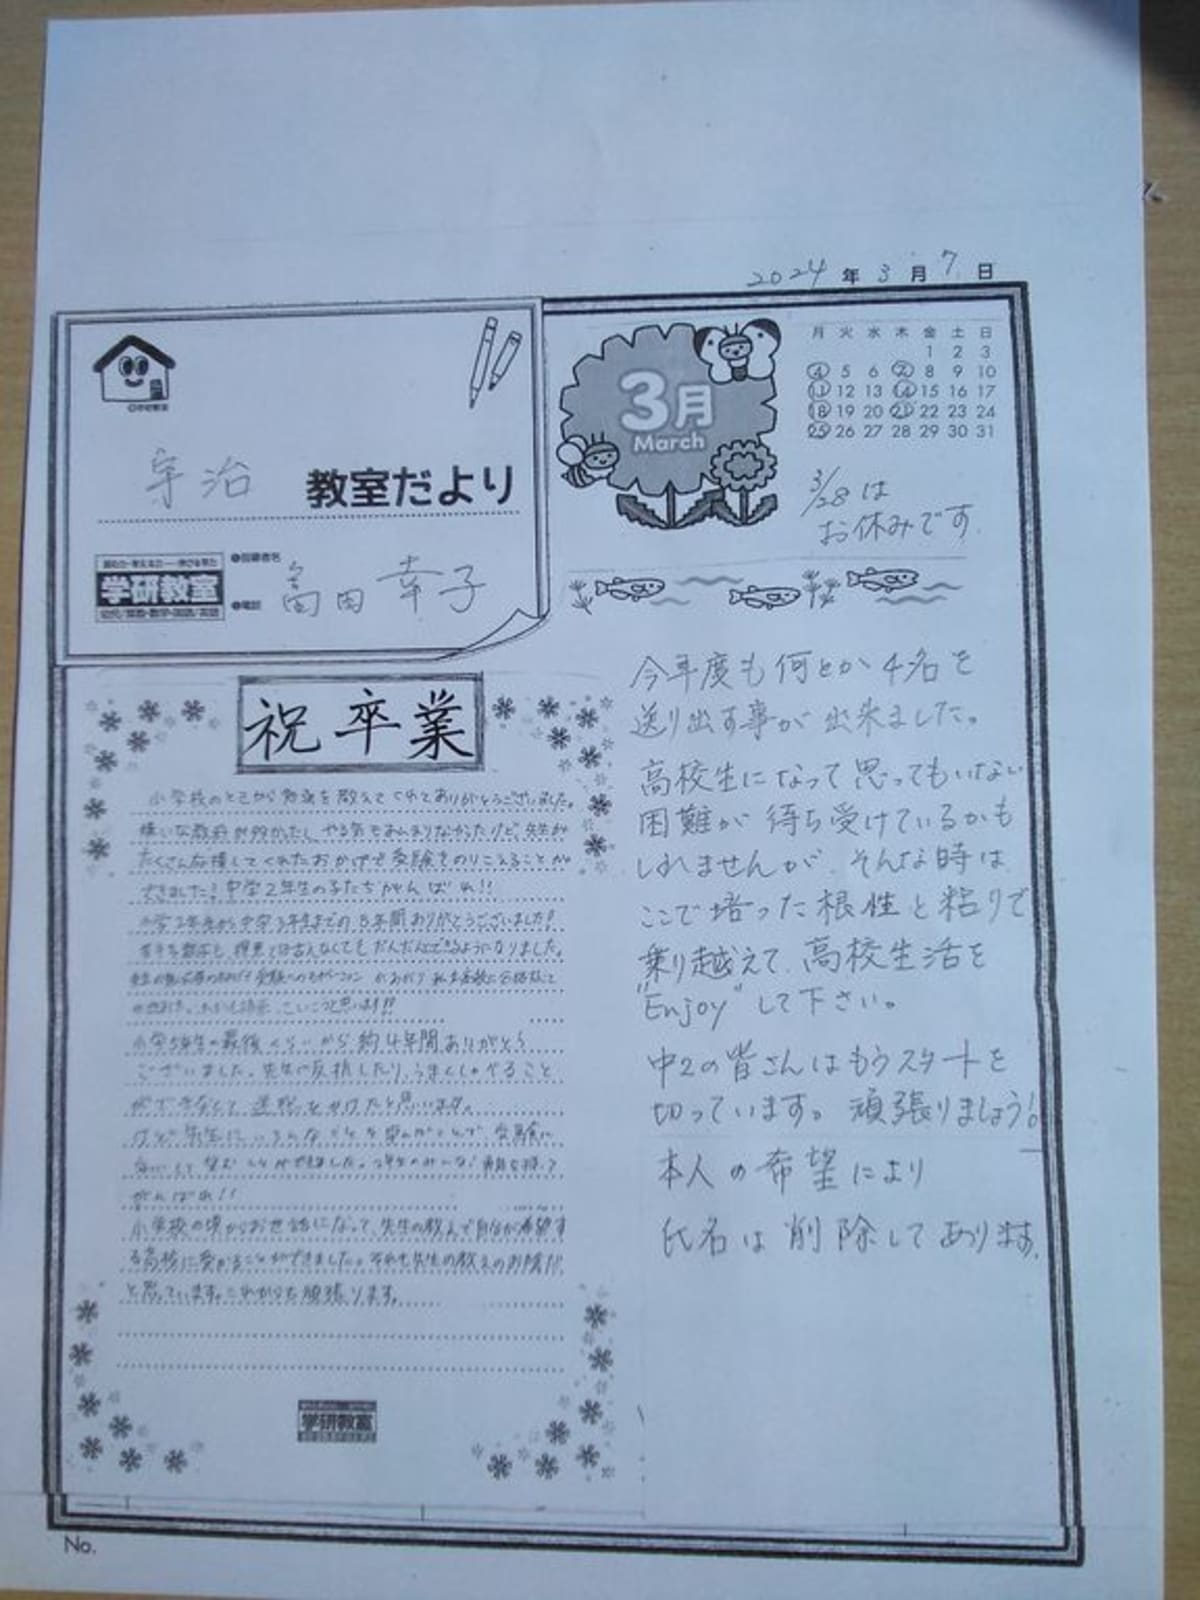 2024年3月7日
宇治 教室だより
学研教室
●指導者名
●電話
富田幸子
3月
March
月 火 水 木 金 土 日
1 2 3
4 5 6 7 8 9 10
11 12 13 14 15 16 17
18 19 20 21 22 23 24
25 26 27 28 29 30 31
3/28は
お休みです
祝卒業
小学校のときから勉強を教えてくれてありがとうございました。
嫌いな教科が多かったし、やる気もあんまりなかったけど、先生が
たくさん応援してくれたおかげで受験をのりこえることが
できました!中学2年生の子たちがんばれ!!
小学2年生から中学3年生までの8年間ありがとうございました!
苦手な数学も、得意とは言えなくてもだんだんできるようになりました。
小学5年生の最後くらいから約4年間ありがとう
ございました。先生に反抗したり、うまくしゃべること
ができなくて、迷惑をかけたと思います。
けど先生にいろんなことを
がんばれ!!
小学校の頃からお世話になって、先生の教えで自分が希望す
る高校に受かることができました。それも先生の教えのお陰だ
と思っています。これからも頑張ります。
学研教室
今年度も何とか4名を
送り出す事が出来ました。
高校生になって思ってもいない
困難が待ち受けているかも
しれませんが、そんな時は
ここで培った根性と粘りで
乗り越えて、高校生活を
"Enjoy"して下さい。
中2の皆さんはもうスタートを
切っています。頑張りましょう!
本人の希望により
氏名は削除してあります。
No.